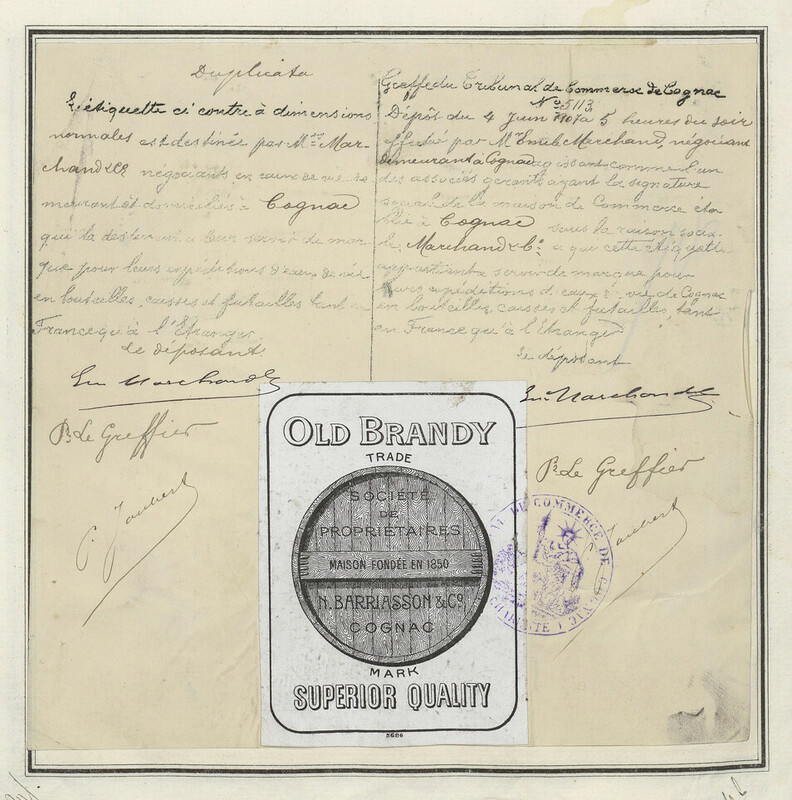 Duplicata
L'étiquette ci contre à dimensions
normales est destinée par Mrs Mar-
chand & Co négociants en eaux de vie de-
meurant et domiciliés à Cognac
qui la destinent à leur servir de mar-
que pour leurs expéditions d'eaux de vie
en bouteilles, caisses et futailles tant en
France qu'à l'Etranger
Le déposant
Em Marchand
Pr Le Greffier
P. Jaubert
Greffe du Tribunal de Commerce de Cognac
No 5113
Dépôt du 4 Juin à 5 heures du soir
effectué par Mr Emile Marchand, négociant
demeurant à Cognac agissant comme l'un
des associés gérants ayant la signature
sociale de la maison de Commerce éta-
blie à Cognac sous la raison socia-
le Marchand & Co a que cette étiquette
appartient servir de marque pour
leurs expéditions d'eaux de vie de Cognac
en bouteilles, caisses et futailles, tant
en France qu'à l'Etranger
Le déposant
Em Marchand
Pr Le Greffier
P. Jaubert
OLD BRANDY
TRADE
SOCIÉTÉ
DE
PROPRIÉTAIRES
MAISON FONDÉE EN 1850
N. BARRIASSON & Co
COGNAC
MARK
SUPERIOR QUALITY
DE COMMERCE DE COGNAC